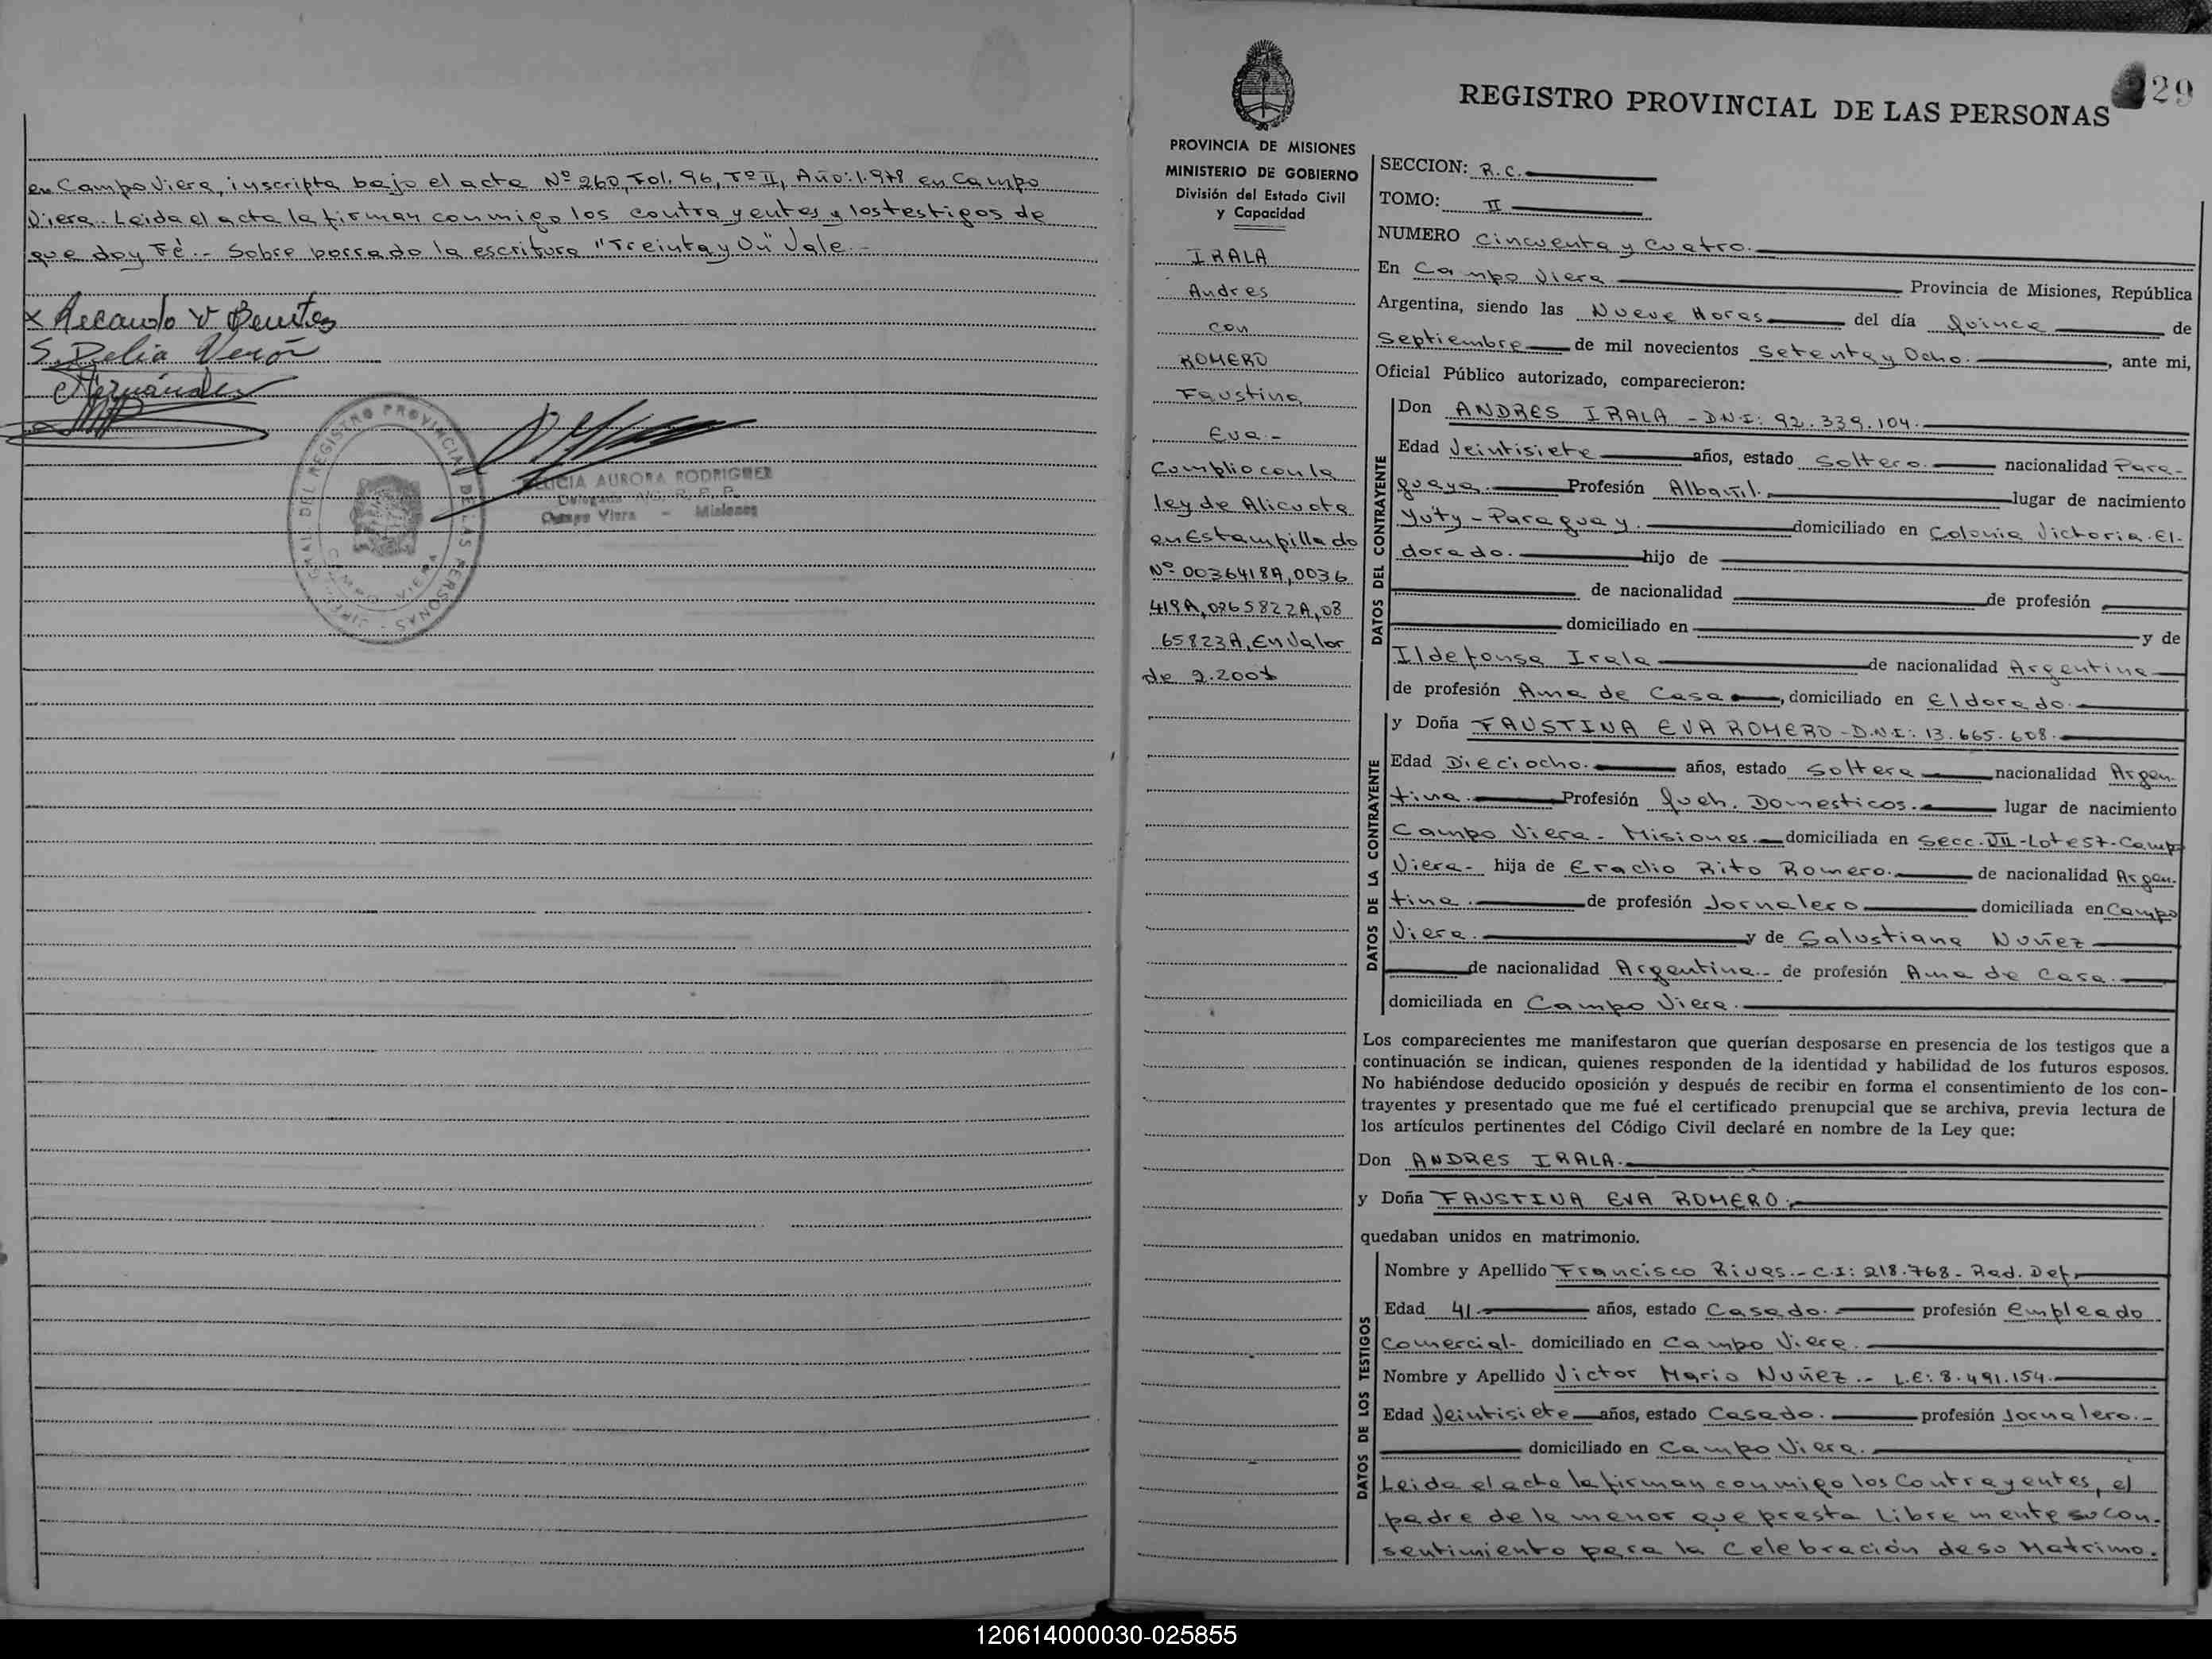 en Campo Viera, inscripta bajo el acta Nº 260, Fol. 96, Tº II, Año: 1.978 en Campo
Viera.- Leida el acta la firman conmigo los contrayentes y los testigos de
que doy Fé.- Sobre borrado la escritura "Treinta y Un" Vale.-
x Ricardo V Benitez
S. Delia Verón
Hernández
DEL REGISTRO PROVINCIAL DE LAS PERSONAS
CAMPO VIERA
AURORA RODRIGUEZ
Delegada A/C. R. P. P.
Campo Viera - Misiones
29
REGISTRO PROVINCIAL DE LAS PERSONAS
PROVINCIA DE MISIONES
MINISTERIO DE GOBIERNO
División del Estado Civil
y Capacidad
IRALA
Andres
con
ROMERO
Faustina
Eva.-
Cumplio con la
ley de Alicuota
en Estampillado
Nº 0036418A, 0036
419A, 0865822A, 08
65823A, En Valor
de 2.200$
SECCION: R.C.
TOMO: II
NUMERO Cincuenta y Cuatro.
En Campo Viera Provincia de Misiones, República
Argentina, siendo las Nueve Horas del día Quince de
Septiembre de mil novecientos Setenta y Ocho. , ante mi,
Oficial Público autorizado, comparecieron:
DATOS DEL CONTRAYENTE
Don ANDRES IRALA - D.N.I: 92.339.104.
Edad Veintisiete años, estado Soltero. nacionalidad Para-
guaya. Profesión Albañil. lugar de nacimiento
Yuty - Paraguay. domiciliado en Colonia Victoria - El-
dorado. hijo de
de nacionalidad de profesión
domiciliado en y de
Ildefonsa Irala de nacionalidad Argentina
de profesión Ama de Casa , domiciliado en Eldorado.
DATOS DE LA CONTRAYENTE
y Doña FAUSTINA EVA ROMERO - D.N.I: 13.665.608.
Edad Dieciocho. años, estado Soltera nacionalidad Argen-
tina. Profesión Queh. Domesticos. lugar de nacimiento
Campo Viera - Misiones. domiciliada en Secc. VII - Lote 57 - Campo
Viera - hija de Eraclio Rito Romero. de nacionalidad Argen-
tina. de profesión Jornalero domiciliada en Campo
Viera. y de Salustiana Nuñez
de nacionalidad Argentina.- de profesión Ama de Casa.
domiciliada en Campo Viera.
Los comparecientes me manifestaron que querían desposarse en presencia de los testigos que a
continuación se indican, quienes responden de la identidad y habilidad de los futuros esposos.
No habiéndose deducido oposición y después de recibir en forma el consentimiento de los con-
trayentes y presentado que me fué el certificado prenupcial que se archiva, previa lectura de
los artículos pertinentes del Código Civil declaré en nombre de la Ley que:
Don ANDRES IRALA.
y Doña FAUSTINA EVA ROMERO.
quedaban unidos en matrimonio.
DATOS DE LOS TESTIGOS
Nombre y Apellido Francisco Rivas.- C.I: 218.768 - Rad. Def.
Edad 41.- años, estado Casado. profesión Empleado
Comercial - domiciliado en Campo Viera.
Nombre y Apellido Victor Mario Nuñez.- L.E: 8.491.154.
Edad Veintisiete años, estado Casado. profesión Jornalero.-
domiciliado en Campo Viera.
Leida el acta la firman conmigo los Contrayentes, el
padre de la menor que presta Libremente su con-
sentimiento para la Celebración de su Matrimo-
120614000030-025855